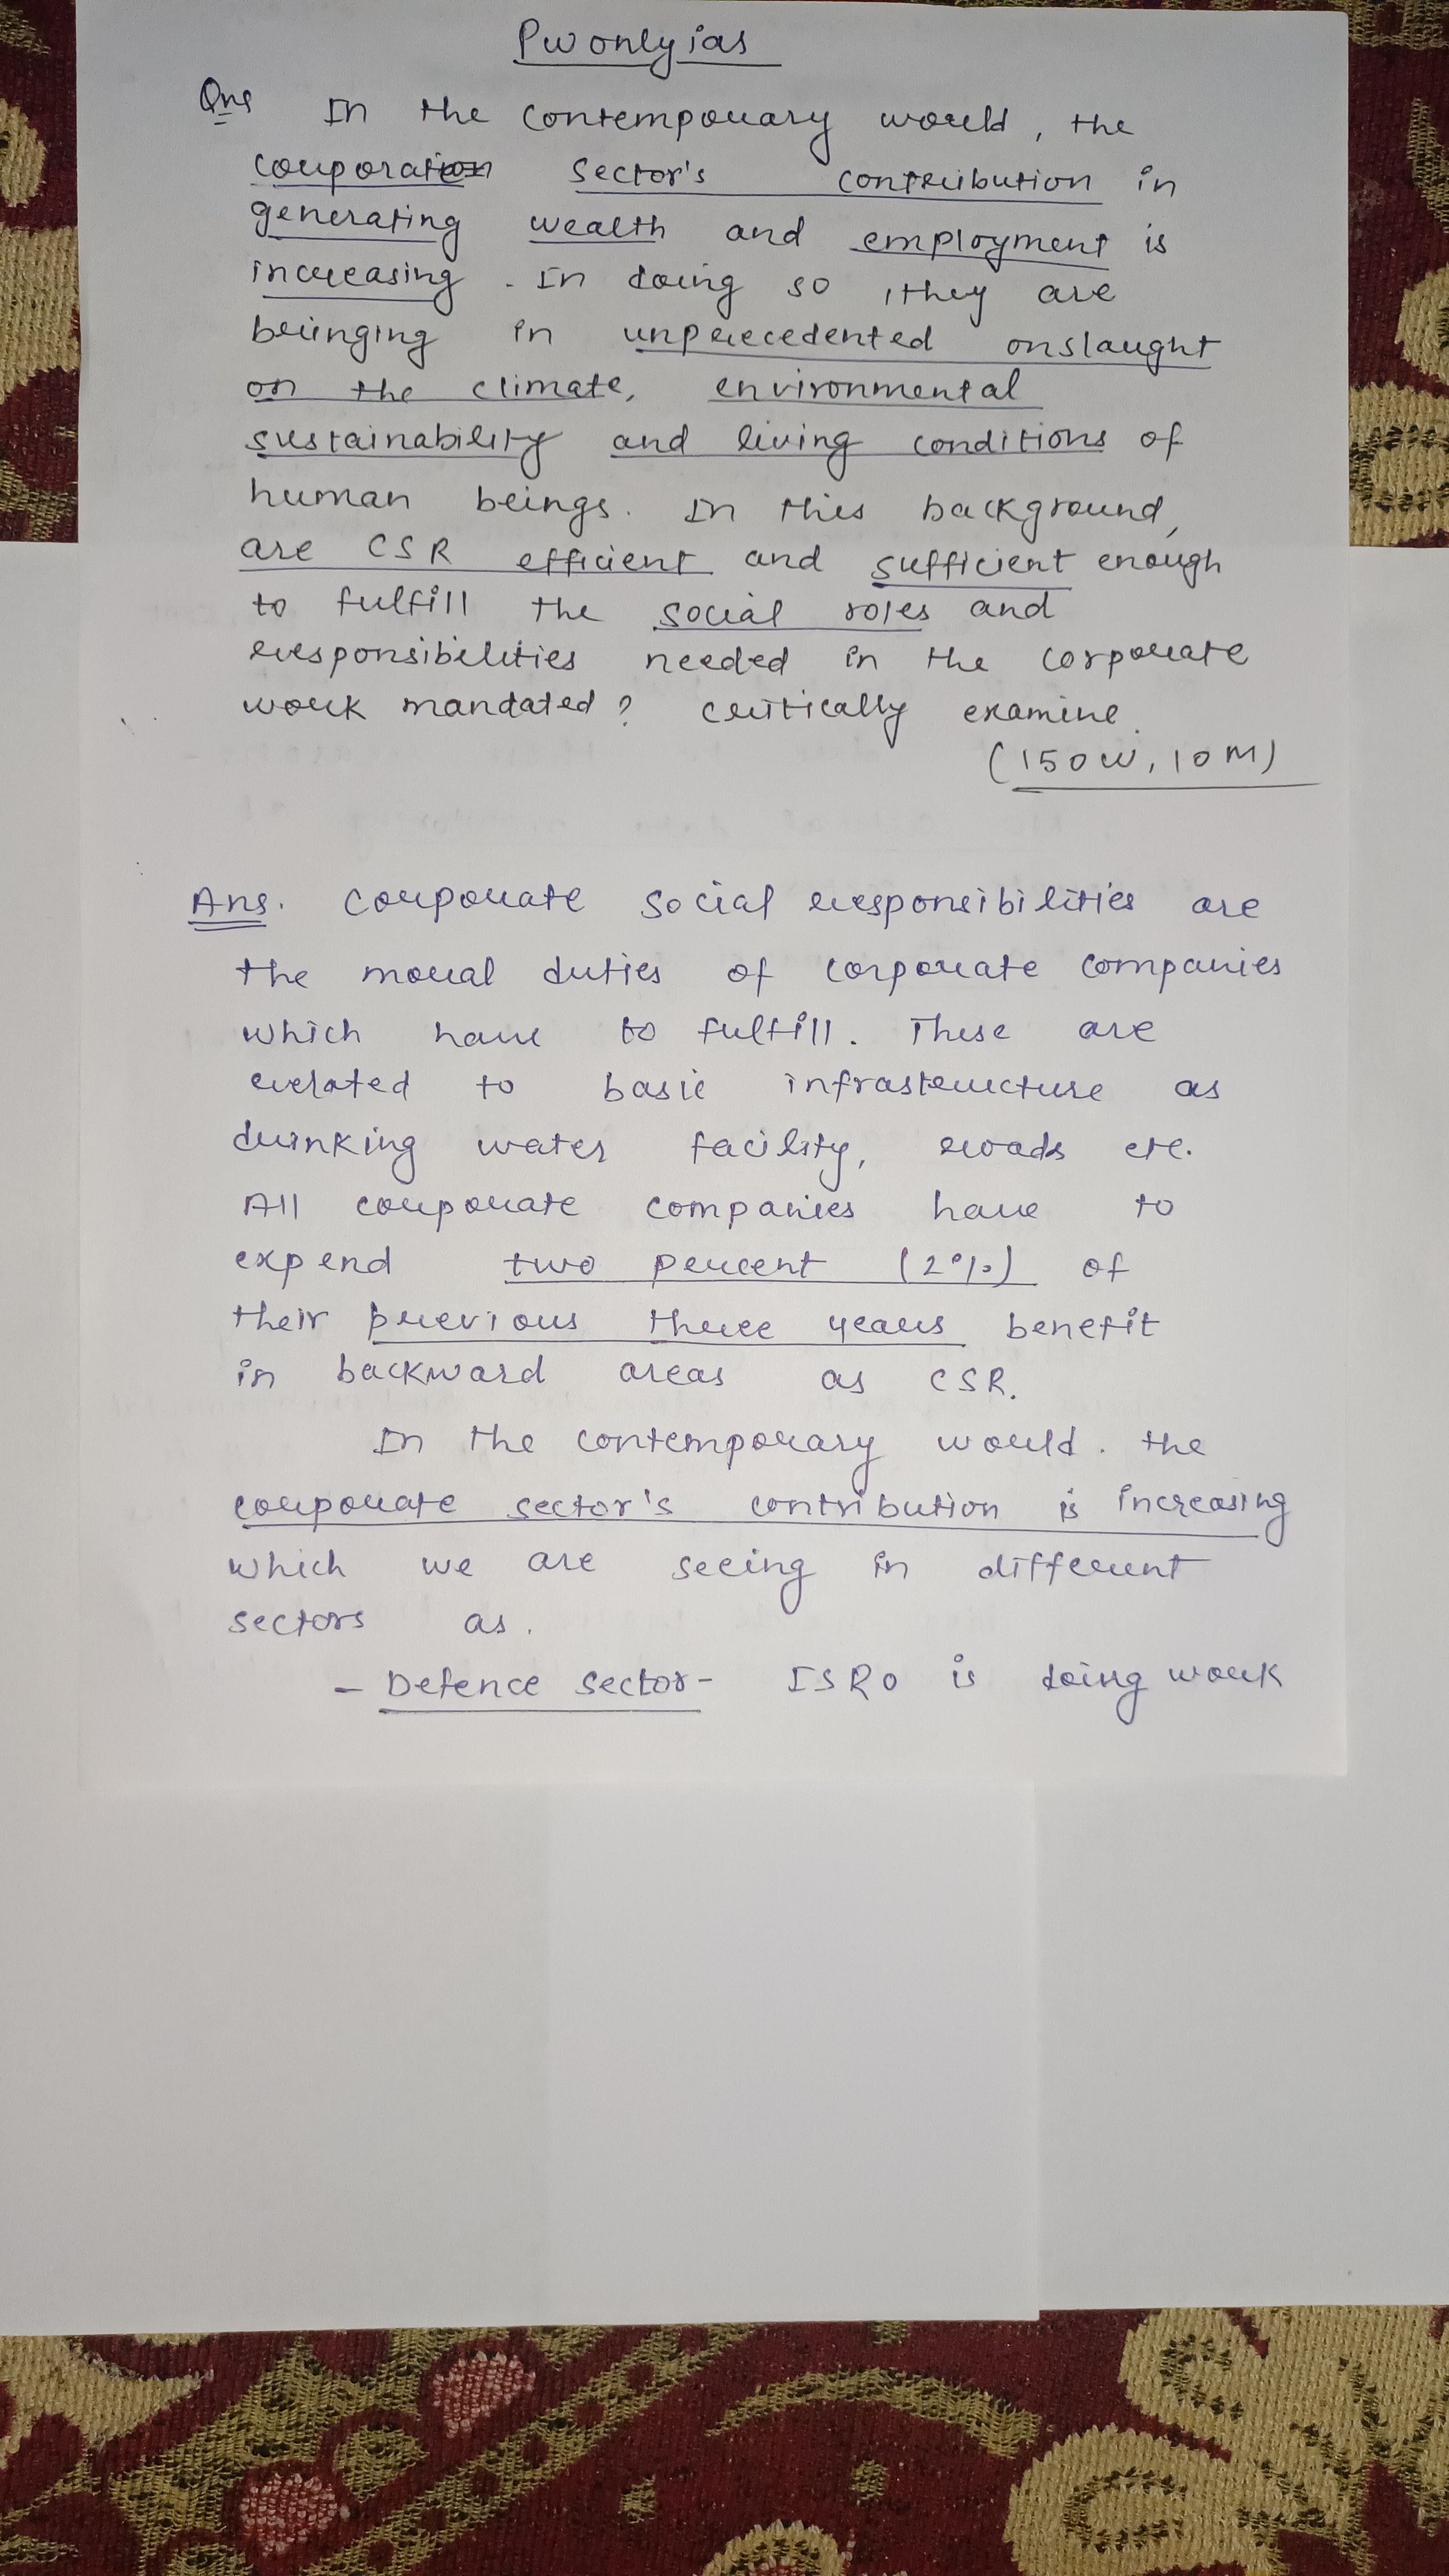 Pwonlyias
Qns In the contemporary world, the
corporation sector's contribution in
generating wealth and employment is
increasing. In doing so, they are
bringing in unprecedented onslaught
on the climate, environmental
sustainability and living conditions of
human beings. In this background,
are CSR efficient and sufficient enough
to fulfill the social roles and
responsibilities needed in the corporate
work mandated? critically examine.
(150W, 10M)
Ans. corporate social responsibilities are
the moral duties of corporate companies
which have to fulfill. These are
related to basic infrastructure as
drinking water facility, roads etc.
All corporate companies have to
expend two percent (2%) of
their previous three years benefit
in backward areas as CSR.
In the contemporary world. the
corporate sector's contribution is increasing
which we are seeing in different
sectors as.
- Defence sector- ISRO is doing work